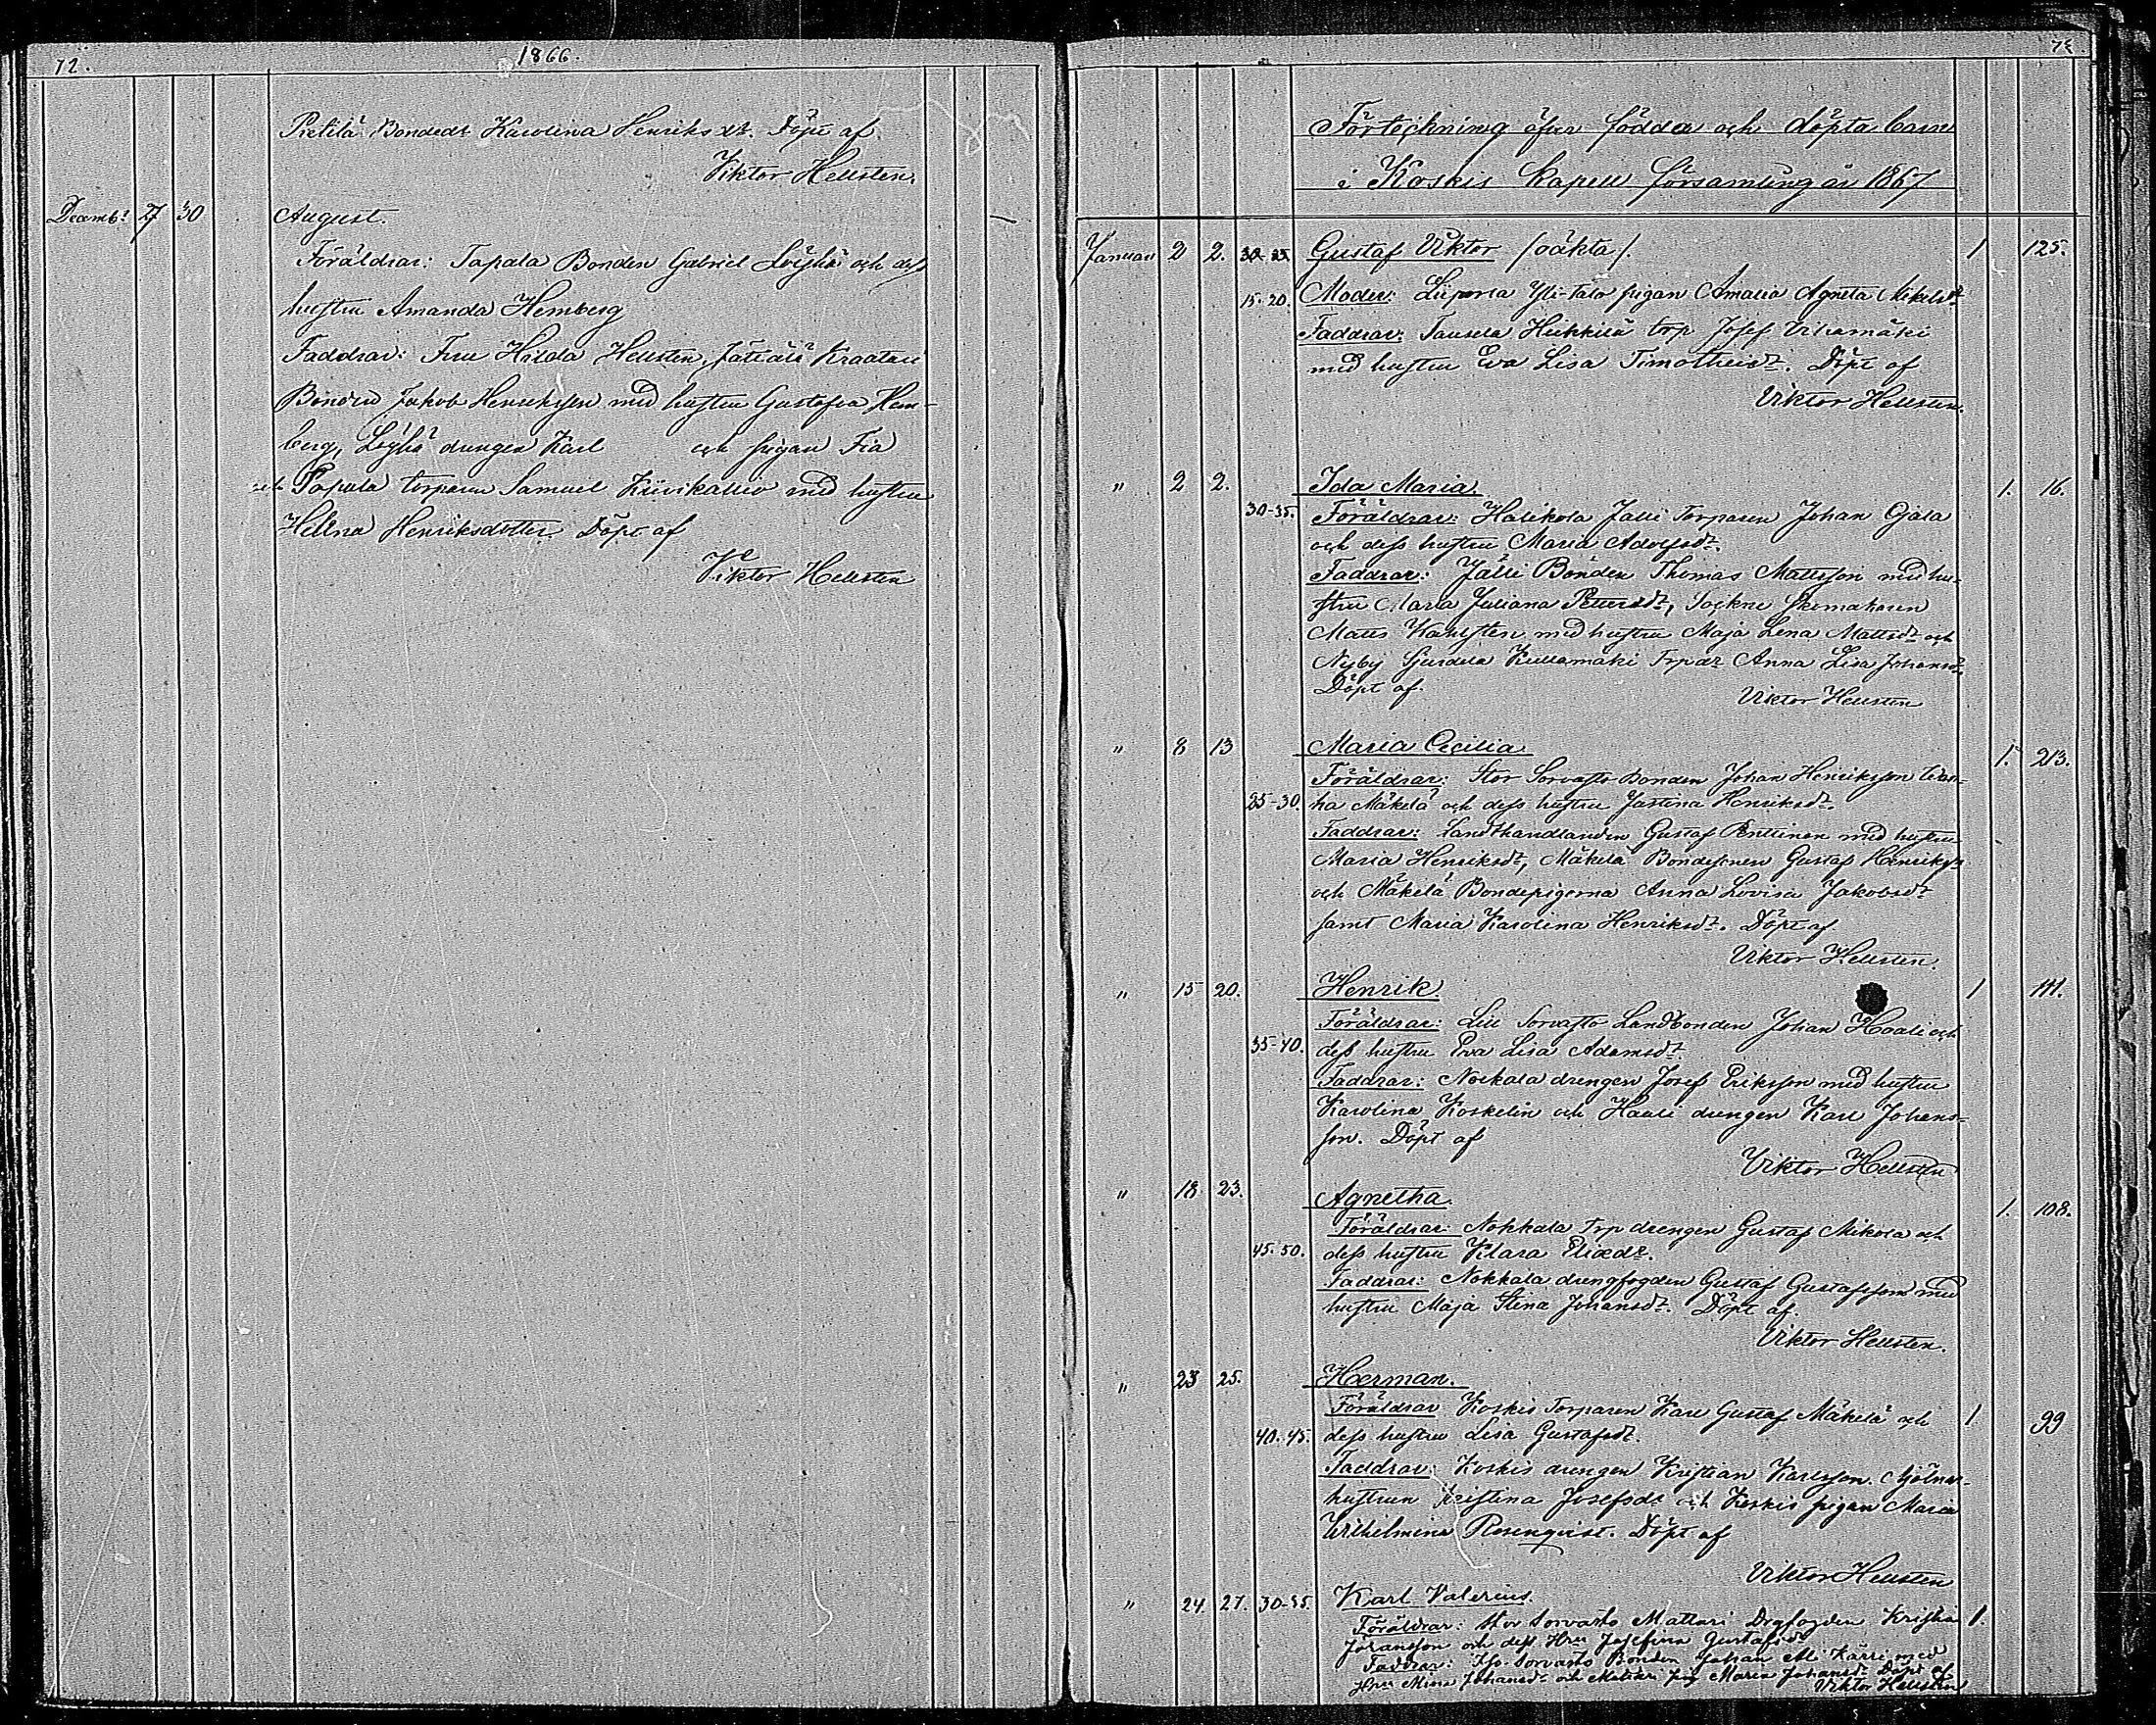 72.
1866.
Pietilä Bondedr Karolina Henriksdt. Döpt af
Viktor Hellsten.
Decembr 27 30 August.
Föräldrar: Tapala Bonden Gabriel Löyhä och dess
hustru Amanda Hemberg
Faddrar: Fru Hilda Hellsten, Kraatari
Bonden Jakob Henriksson med hustru Gustafva Hem-
berg, Löyhä drengen Karl och pigan Fia
och Tapala torparen Samuel Kiivikallio med hustru
Helena Henriksdotter. Döpt af
Viktor Hellsten
Förteckning öfver födda och döpta barn
i Koskis Kapell församling år 1867
Januari 2 2. Gustaf Viktor (oäkta). 1 125.
15-20. Moder: Liipola Yli-Talo pigan Amalia Agneta Mikelsdr
Faddrar: Tausela Heikkilä torp Josef
med hustru Eva Lisa Timotheidr. Döpt af
Viktor Hellsten.
" 2 2. Ida Maria 1. 16.
30-35. Föräldrar: Halikola Jalli Torparen Johan Ojala
och dess hustru Maria Adolfsdr.
Faddrar: Jalli Bonden Thomas Mattsson med hu-
stru Maria Juliana Pettersdr, Sockne Skomakaren
Matts Kahlsten med hustru Maja Lena Mattsdr och
Nyby Kullamäki Trpdr Anna Lisa Johansdr.
Döpt af
Viktor Hellsten
" 8 13 Maria Cecilia 1. 213.
Föräldrar: Stor Sorvasto Bonden Johan Henriksson Wan-
25-30. ha Mäkelä och dess hustru Justina Henriksdr.
Faddrar: Landthandlanden Gustaf Penttinen med hustru
Maria Henriksdr, Mäkelä Bondesonen Gustaf Henrikss
och Mäkelä Bondepigorna Anna Lovisa Jakobsdr
samt Maria Karolina Henriksdr. Döpt af
Viktor Hellsten.
" 15 20. Henrik 1 111.
Föräldrar: Lill Sorvasto Landbonden Johan Haali och
35-40. dess hustru Eva Lisa Adamsdr.
Faddrar: Nokkala drengen Josef Eriksson med hustru
Karolina Koskelin och Haali drengen Karl Johans-
son. Döpt af
Viktor Hellsten
" 18 23. Agnetha. 1. 108.
Föräldrar: Nokkala trp drengen Gustaf Mikola och
45-50. dess hustru Klara Eliædr.
Faddrar: Nokkala drengfogden Gustaf Gustafsson med
hustru Maja Stina Johansdr. Döpt af
Viktor Hellsten.
" 23 25. Herman.
Föräldrar Koskis Torparen Karl Gustaf Mäkelä och 1 99
40-45. dess hustru Lisa Gustafsdr.
Faddrar: Koskis drengen Kristian Karlsson. Mjölnar-
hustrun Kristina Josefsdr och Koskis pigan Maria
Wilhelmina Rosenqvist. Döpt af
Viktor Hellsten
" 24. 27. 30-35. Karl Valerius.
Föräldrar: Stor Sorvasto Mattari Drgfogden Kristian 1.
Johansson och dess Hru Josefina Gustafsdr
Faddrar: Sorvasto Bonden Johan Ali Kärri med
Hru Mina Johansdr och Mattari pig Maria Johansdr. Döpt af
Viktor Hellsten